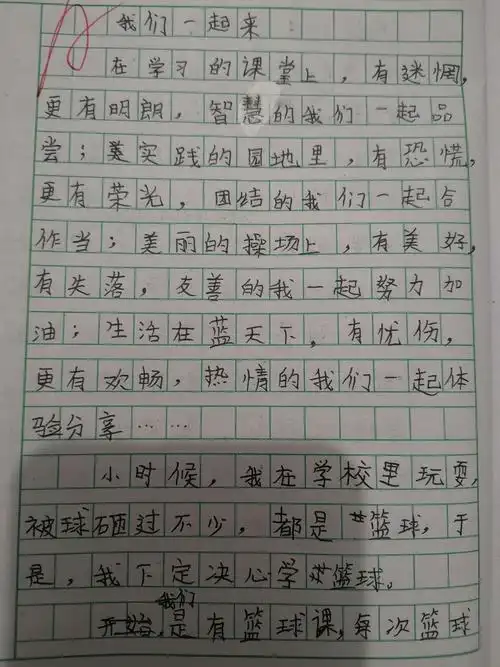 我们一起来
在学习的课堂上，有迷惘，
更有明朗，智慧的我们一起品
尝；美实践的园地里，有恐慌，
更有荣光，团结的我们一起合
作当；美丽的操场上，有美好，
有失落，友善的我一起努力加
油；生活在蓝天下，有忧伤，
更有欢畅，热情的我们一起体
验分享……
小时候，我在学校里玩耍，
被球砸过不少，都是篮球，于
是，我下定决心学篮球。
我们
开始，是有篮球课，每次篮球